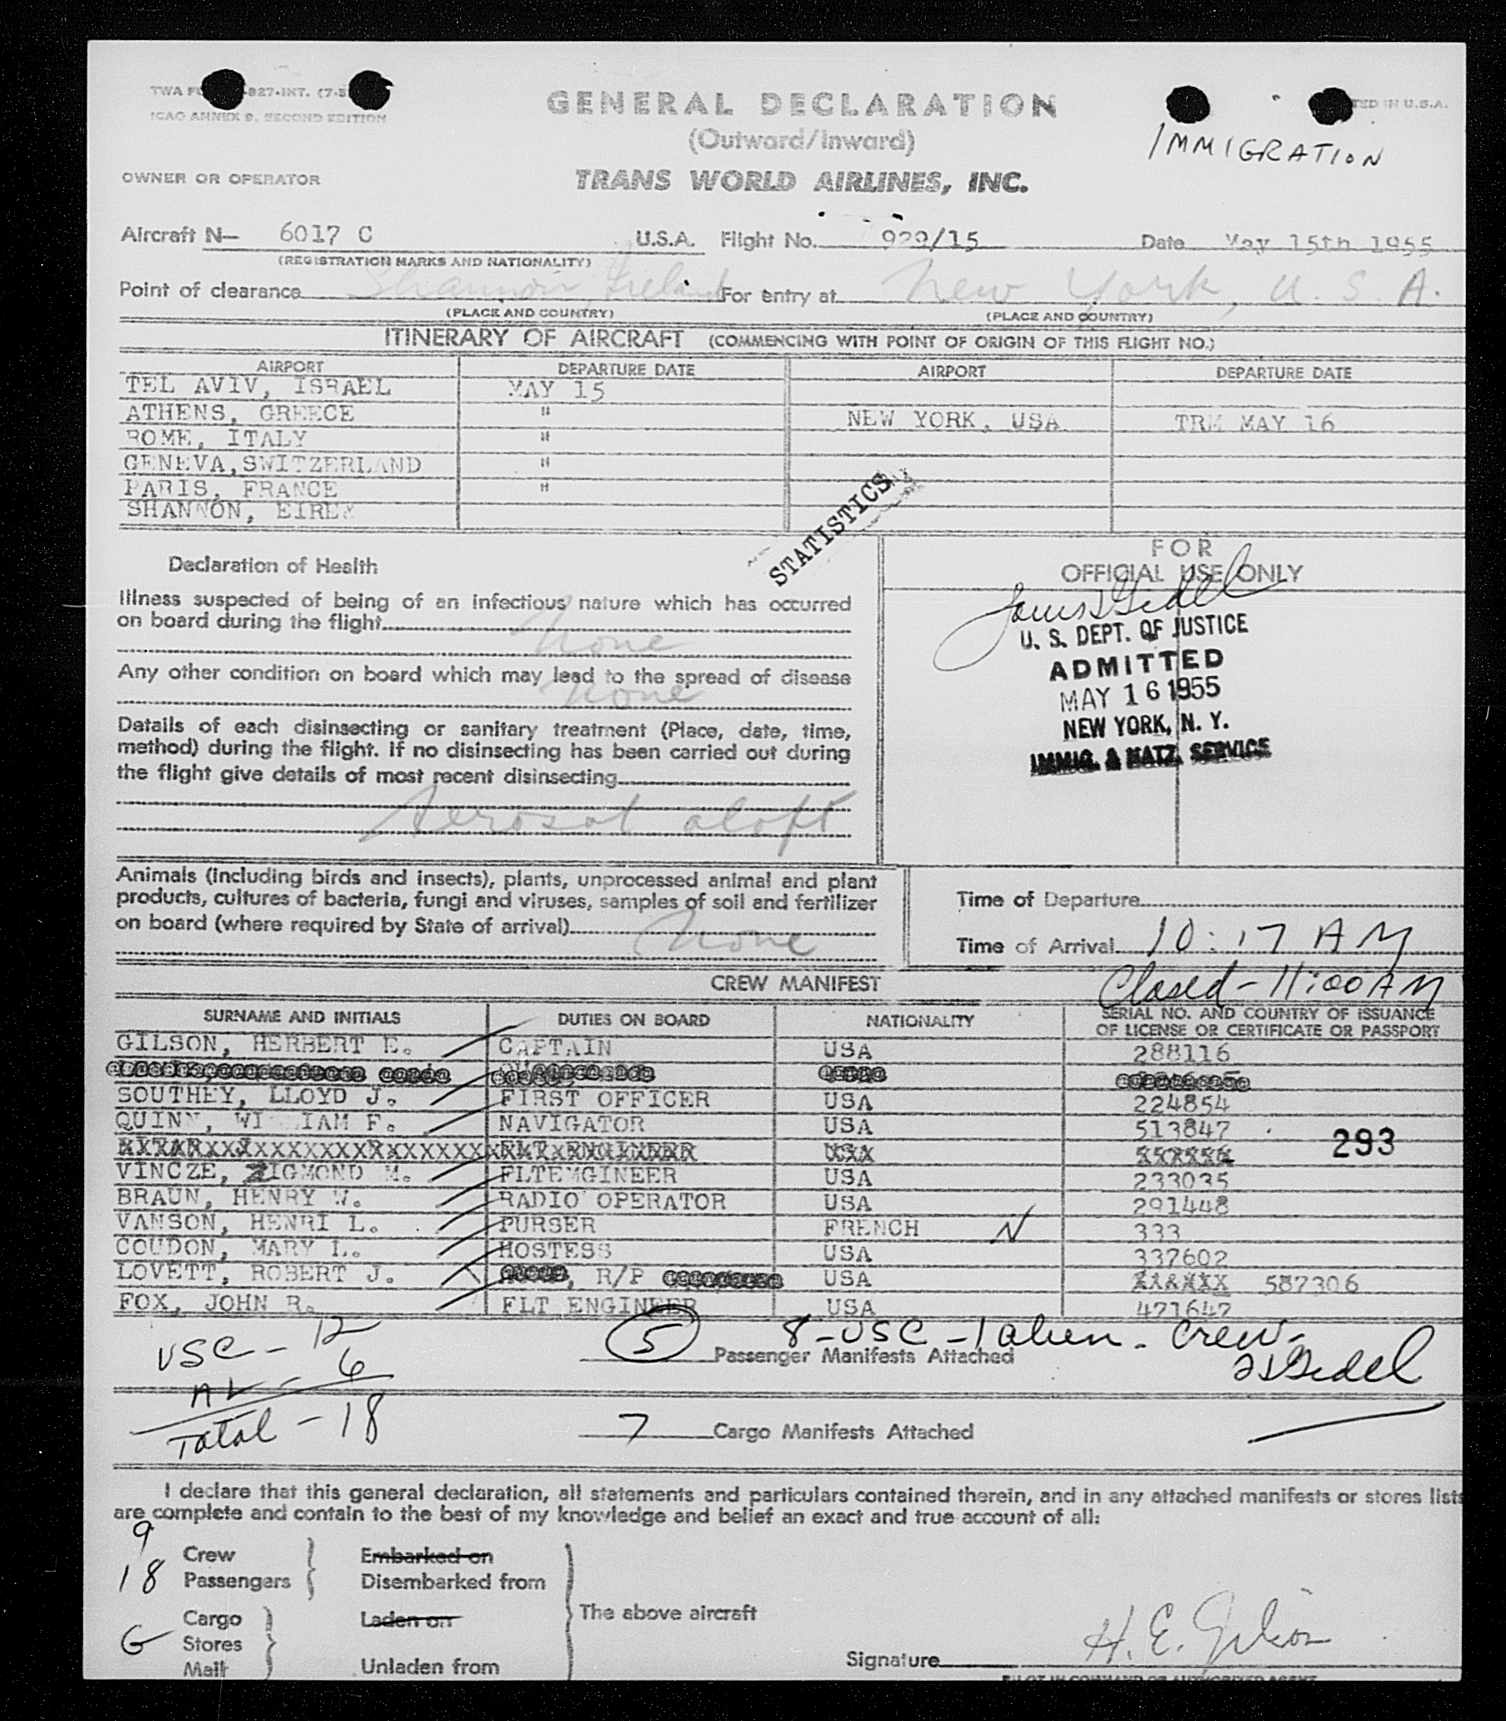 GENERAL DECLARATION
(Outward/Inward)
ICAO ANNEX 9, SECOND EDITION
IMMIGRATION
OWNER OR OPERATOR
TRANS WORLD AIRLINES, INC.
Aircraft N— 6017 C U.S.A. Flight No. 929/15 Date May 15th 1955
(REGISTRATION MARKS AND NATIONALITY)
Point of clearance Shannon, Ireland For entry at New York, U.S.A.
(PLACE AND COUNTRY) (PLACE AND COUNTRY)
ITINERARY OF AIRCRAFT (COMMENCING WITH POINT OF ORIGIN OF THIS FLIGHT NO.)
AIRPORT DEPARTURE DATE AIRPORT DEPARTURE DATE
TEL AVIV, ISRAEL MAY 15
ATHENS, GREECE " NEW YORK, USA TRM MAY 16
ROME, ITALY "
GENEVA,SWITZERLAND "
PARIS, FRANCE "
SHANNON, EIRE
STATISTICS
Declaration of Health
Illness suspected of being of an infectious nature which has occurred
on board during the flight
None
Any other condition on board which may lead to the spread of disease
None
Details of each disinsecting or sanitary treatment (Place, date, time,
method) during the flight. If no disinsecting has been carried out during
the flight give details of most recent disinsecting
Aerosol aloft
FOR
OFFICIAL USE ONLY
U. S. DEPT. OF JUSTICE
ADMITTED
MAY 16 1955
NEW YORK, N. Y.
IMMIG. & NATZ. SERVICE
Animals (including birds and insects), plants, unprocessed animal and plant
products, cultures of bacteria, fungi and viruses, samples of soil and fertilizer
on board (where required by State of arrival) None
Time of Departure
Time of Arrival 10:17 AM
Closed - 11:00 AM
CREW MANIFEST
SURNAME AND INITIALS DUTIES ON BOARD NATIONALITY SERIAL NO. AND COUNTRY OF ISSUANCE
OF LICENSE OR CERTIFICATE OR PASSPORT
GILSON, HERBERT E. CAPTAIN USA 288116
SOUTHEY, LLOYD J. FIRST OFFICER USA 224854
QUINN, WILLIAM F. NAVIGATOR USA 513847
293
VINCZE, ZIGMOND M. FLTEMGINEER USA 233035
BRAUN, HENRY W. RADIO OPERATOR USA 291448
VANSON, HENRI L. PURSER FRENCH N 333
COUDON, MARY L. HOSTESS USA 337602
LOVETT, ROBERT J. R/P USA 587306
FOX, JOHN R. FLT ENGINEER USA 471647
USC - 12
AL - 6
Total - 18
5 Passenger Manifests Attached
8-USC-1 alien - Crew-
7 Cargo Manifests Attached
I declare that this general declaration, all statements and particulars contained therein, and in any attached manifests or stores lists
are complete and contain to the best of my knowledge and belief an exact and true account of all:
9 Crew Embarked on
18 Passengers Disembarked from
The above aircraft
G Cargo Laden on
Stores
Mail Unladen from
Signature H. E. Gilson
PILOT IN COMMAND OR AUTHORIZED AGENT